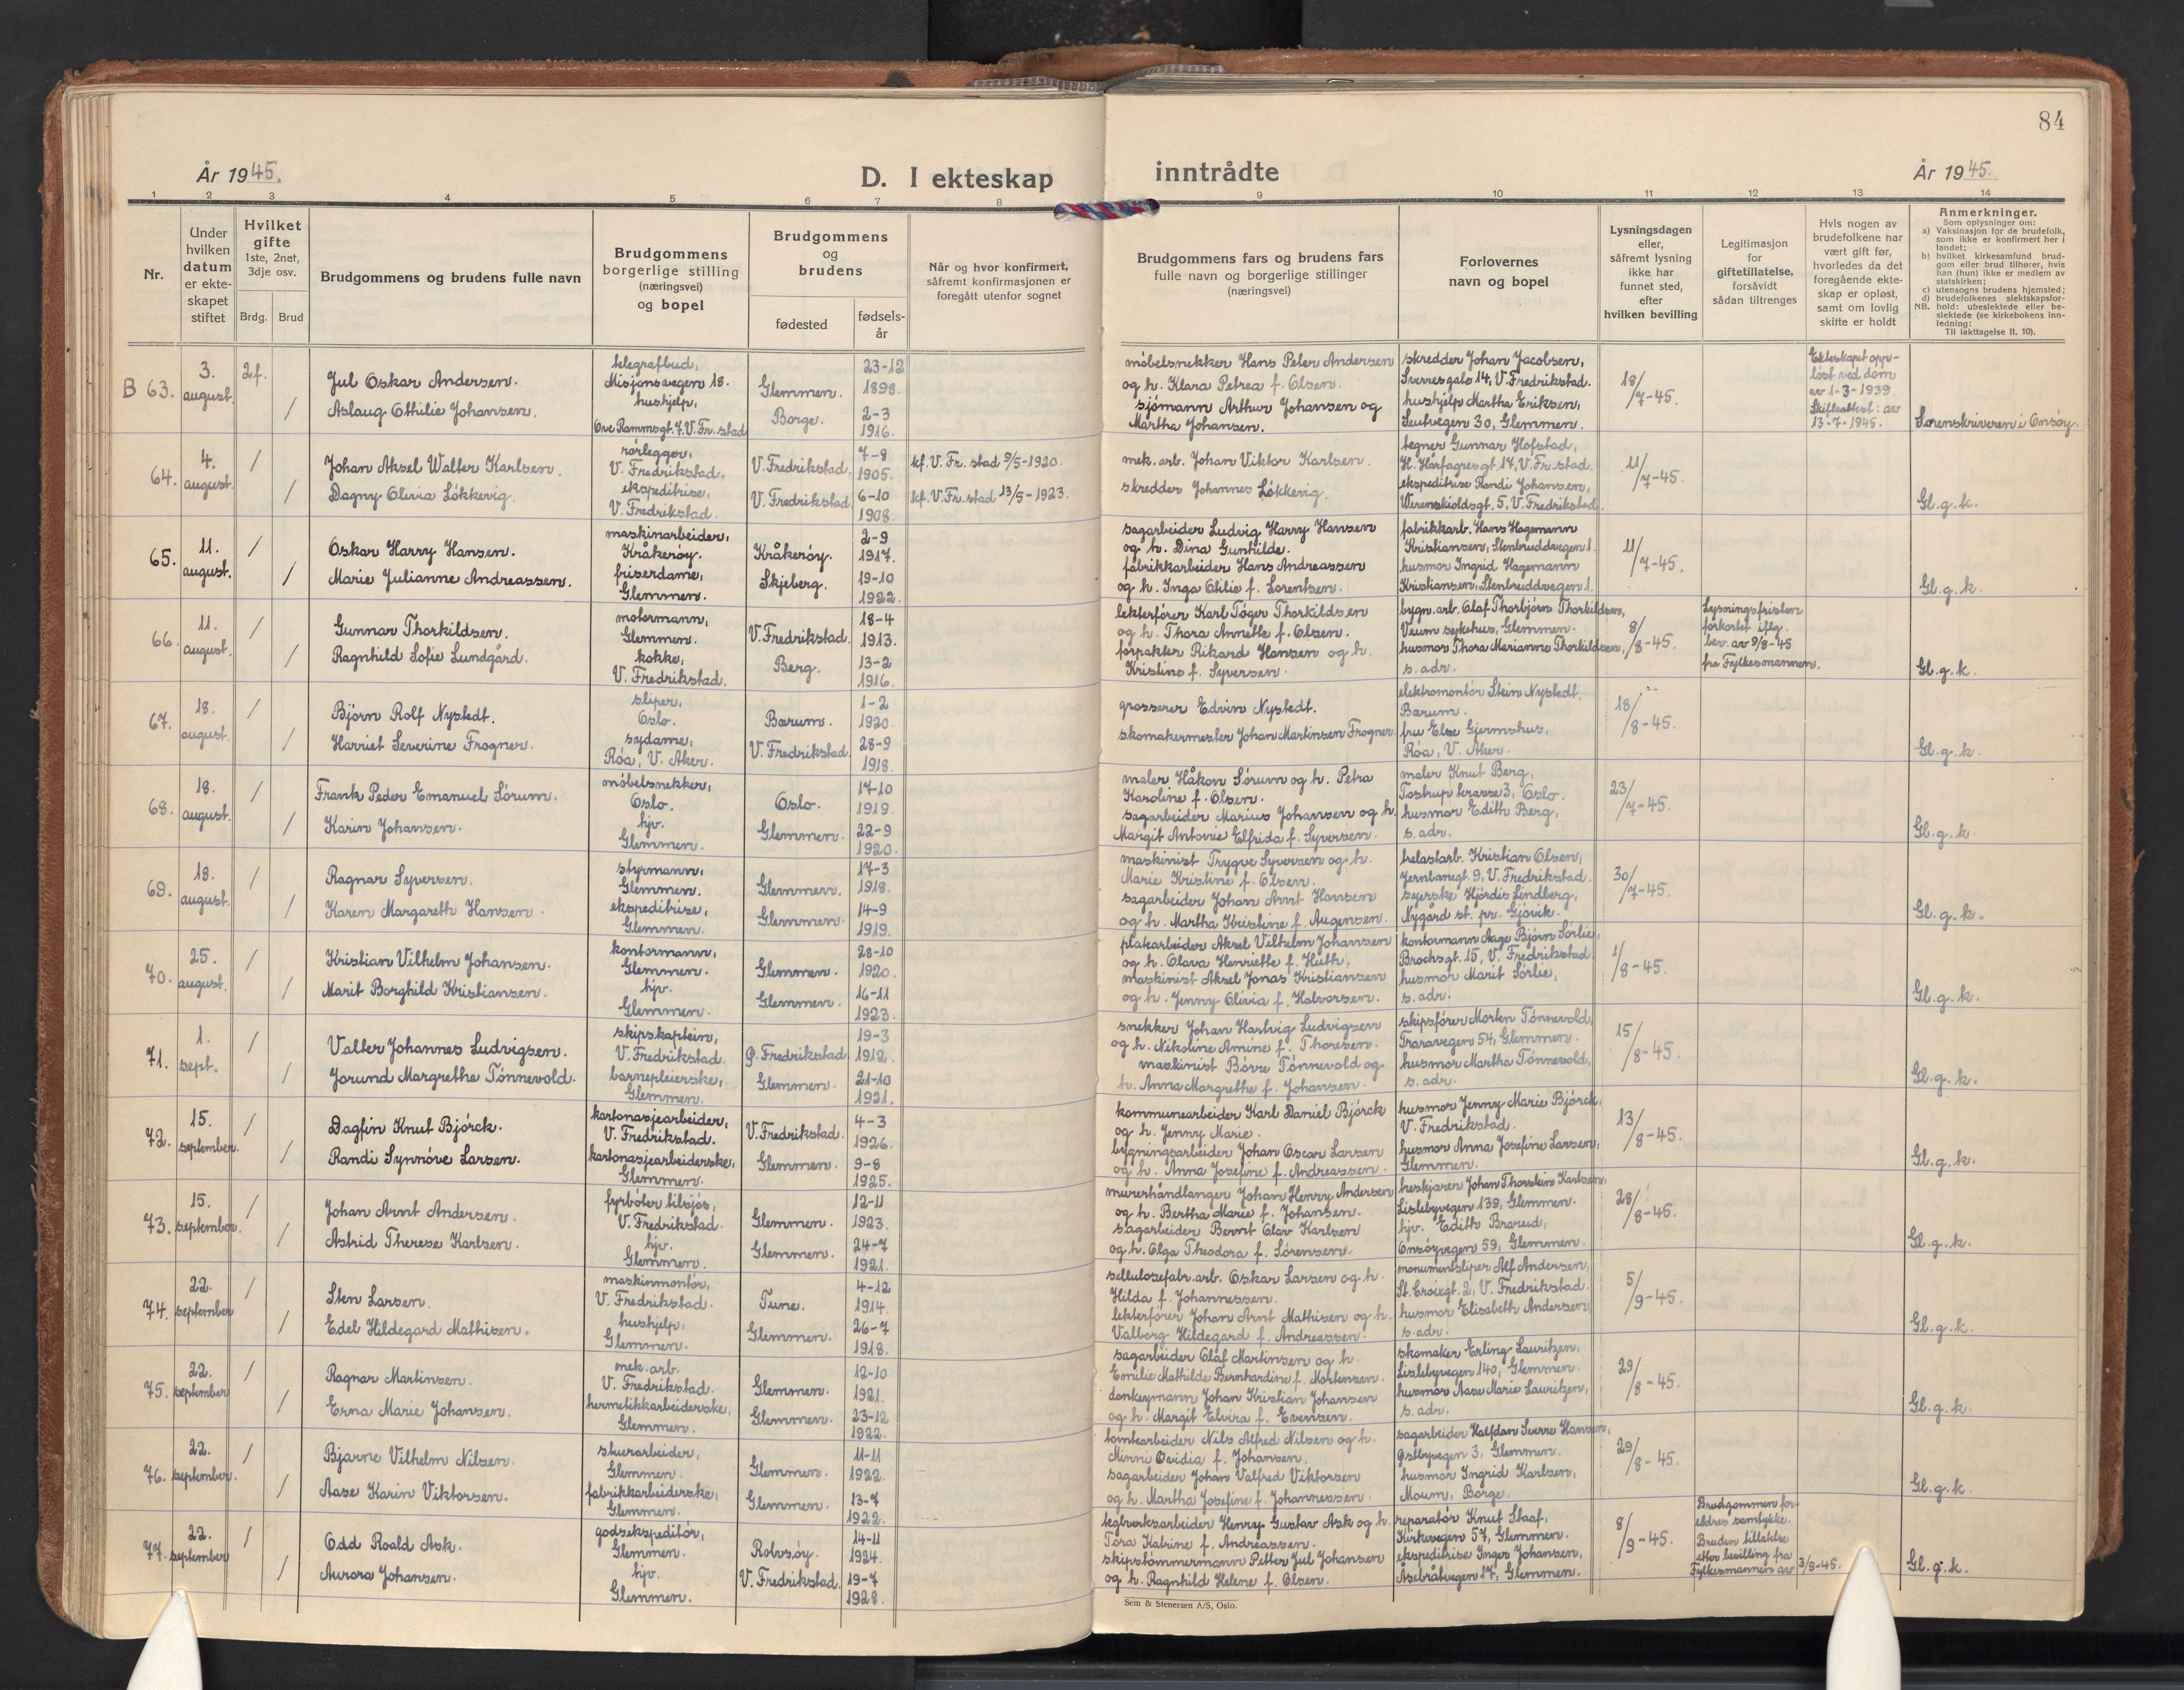 84
År 1945.
D. I ekteskap inntrådte
År 1945.
1 2 3 4 5 6 7 8 9 10 11 12 13 14
Nr.
Under hvilken datum er ekteskapet stiftet
Hvilket gifte 1ste, 2net, 3dje osv.
Brdg. Brud
Brudgommens og brudens fulle navn
Brudgommens borgerlige stilling (næringsvei) og bopel
Brudgommens og brudens
fødested
fødselsår
Når og hvor konfirmert, såfremt konfirmasjonen er foregått utenfor sognet
Brudgommens fars og brudens fars fulle navn og borgerlige stillinger (næringsvei)
Forlovernes navn og bopel
Lysningsdagen eller, såfremt lysning ikke har funnet sted, efter hvilken bevilling
Legitimasjon for giftetillatelse, forsåvidt sådan tiltrenges
Hvis nogen av brudefolkene har vært gift før, hvorledes da det foregående ekteskap er opløst, samt om lovlig skifte er holdt
Anmerkninger.
Som oplysninger om:
a) Vaksinasjon for de brudefolk, som ikke er konfirmert her i landet;
b) hvilket kirkesamfund brudgom eller brud tilhører, hvis han (hun) ikke er medlem av statskirken;
c) utensogns brudens hjemsted;
d) brudefolkenes slektskapsforhold: ubeslektede eller beslektede (se kirkebokens innledning:
NB.
Til iakttagelse II. 10).
B 63. 3. august. 2f. /
Jul Oskar Andersen.
Aslaug Othilie Johansen.
telegrafbud, Misjonsvegen 18.
hushjelp, Ove Rammsgt. 7. V. Fr.stad
Glemmen. 23-12 1898.
Borge. 2-3 1916.
møbelsnekker Hans Peter Andersen
og h. Klara Petrea f. Olsen.
sjømann Arthur Johansen og
Martha Johansen.
skredder Johan Jacobsen,
Sverresgate 14, V. Fredrikstad.
hushjelp Martha Eriksen,
Seutvegen 30, Glemmen.
18/7-45.
Ekteskapet oppløst ved dom av 1-3-1939. Skifteattest: av 13-7-1945.
Sorenskriveren i Onsøy.
64. 4. august. / /
Johan Aksel Walter Karlsen.
Dagny Olivia Løkkevig.
rørlegger, V. Fredrikstad.
ekspeditrise, V. Fredrikstad.
V. Fredrikstad. 7-8 1905. kf. V. Fr.stad 9/5-1920.
V. Fredrikstad. 6-10 1908. kf. V. Fr.stad 13/5-1923.
mek. arb. Johan Viktor Karlsen.
skredder Johannes Løkkevig.
tegner Gunnar Hofstad,
H. Hårfagresgt. 17, V. Fr.stad.
ekspeditrise Randi Johansen,
Werenskioldsgt. 5, V. Fredrikstad.
11/7-45.
Gl. g. k.
65. 11. august. / /
Oskar Harry Hansen.
Marie Julianne Andreassen.
maskinarbeider, Kråkerøy.
friserdame, Glemmen.
Kråkerøy. 2-9 1917.
Skjeberg. 19-10 1922.
sagarbeider Ludvig Harry Hansen
og h. Dina Gunhilde.
fabrikkarbeider Hans Andreassen
og h. Inga Otilie f. Lorentsen.
fabrikkarb. Hans Hagemann
Kristiansen, Stenbruddvegen 1.
husmor Ingrid Hagemann
Kristiansen, Stenbruddvegen 1.
11/7-45.
Gl. g. k.
66. 11. august. / /
Gunnar Thorkildsen.
Ragnhild Sofie Lundgård.
motormann, Glemmen.
kokke, V. Fredrikstad.
V. Fredrikstad. 18-4 1913.
Berg. 13-2 1916.
lekterfører Karl Tøger Thorkildsen
og h. Thora Annette f. Olsen.
forpakter Rikard Hansen og h.
Kristine f. Syversen.
bygn. arb. Olaf Thorbjørn Thorkildsen,
Veum sykehus, Glemmen.
husmor Thora Marianne Thorkildsen,
s. adr.
8/8-45.
Lysningsfristen forkortet iflg. bev. av 9/8-45 fra Fylkesmannen.
Gl. g. k.
67. 18. august. / /
Bjørn Rolf Nystedt.
Harriet Severine Frogner.
sliper, Oslo.
sydame, Røa, V. Aker.
Bærum. 1-2 1920.
V. Fredrikstad. 28-9 1918.
grosserer Edvin Nystedt.
skomakermester Johan Martinsen Frogner.
elektromontør Stein Nystedt,
Bærum.
fru Else Gjermshus,
Røa, V. Aker.
18/8-45.
Gl. g. k.
68. 18. august. / /
Frank Peder Emanuel Sørum.
Karin Johansen.
møbelsnekker, Oslo.
hjv. Glemmen.
Oslo. 17-10 1919.
Glemmen. 22-9 1920.
maler Håkon Sørum og h. Petra
Karoline f. Olsen.
sagarbeider Marius Johansen og h.
Margit Antonie Elfrida f. Syversen.
maler Knut Berg,
Tostrup terasse 3, Oslo.
husmor Edith Berg,
s. adr.
23/7-45.
Gl. g. k.
69. 18. august. / /
Ragnar Syversen.
Karen Margareth Hansen.
styrmann, Glemmen.
ekspeditrise, Glemmen.
Glemmen. 17-3 1918.
Glemmen. 14-9 1919.
maskinist Trygve Syversen og h.
Marie Kristine f. Olsen.
sagarbeider Johan Arnt Hansen
og h. Martha Kristine f. Augensen.
helastarb. Kristian Olsen,
Jernbanegt. 9, V. Fredrikstad.
syerske Hjørdis Lindberg,
Nygård st. pr. Gjøvik.
30/7-45.
Gl. g. k.
70. 25. august. / /
Kristian Vilhelm Johansen.
Marit Borghild Kristiansen.
kontormann, Glemmen.
hjv. Glemmen.
Glemmen. 28-10 1920.
Glemmen. 16-11 1923.
platearbeider Aksel Vilhelm Johansen
og h. Olava Henriette f. Huth.
maskinist Aksel Jonas Kristiansen
og h. Jenny Olivia f. Halvorsen.
kontormann Aage Bjørn Sørlie,
Brochsgt. 15, V. Fredrikstad.
husmor Marit Sørlie,
s. adr.
1/8-45.
Gl. g. k.
71. 1. sept. / /
Valter Johannes Ludvigsen.
Jorund Margrethe Tønnevold.
skipskaptein, V. Fredrikstad.
barnepleierske, Glemmen.
Ø. Fredrikstad 19-3 1912.
Glemmen. 21-10 1921.
snekker Johan Hartvig Ludvigsen
og h. Nikoline Amine f. Thoresen.
maskinist Børre Tønnevold og
h. Anna Margrethe f. Johansen.
skipsfører Morten Tønnevold,
Traravegen 54, Glemmen.
husmor Martha Tønnevold,
s. adr.
15/8-45.
Gl. g. k.
72. 15. september. / /
Dagfin Knut Bjørck.
Randi Synnøve Larsen.
kartonasjearbeider, V. Fredrikstad.
kartonasjearbeiderske, Glemmen.
V. Fredrikstad. 4-3 1926.
Glemmen. 9-8 1925.
kommunearbeider Karl Daniel Bjørck
og h. Jenny Marie.
bygningsarbeider Johan Oscar Larsen
og h. Anna Josefine f. Andreassen.
husmor Jenny Marie Bjørck,
V. Fredrikstad.
husmor Anna Josefine Larsen,
Glemmen.
13/8-45.
Gl. g. k.
73. 15. september. / /
Johan Arnt Andersen.
Astrid Therese Karlsen.
fyrbøter tilsjøs, V. Fredrikstad.
hjv. Glemmen.
Glemmen. 12-11 1923.
Glemmen. 24-7 1921.
murerhåndlanger Johan Henry Andersen
og h. Bertha Marie f. Johansen.
sagarbeider Bernt Olav Karlsen
og h. Olga Theodora f. Sørensen.
heskjører Johan Thorstein Karlsen,
Lislebyvegen 139, Glemmen.
hjv. Edith Brarud,
Onsøyvegen 59, Glemmen.
28/8-45.
Gl. g. k.
74. 22. september / /
Sten Larsen.
Edel Hildegard Mathisen.
maskinmontør, V. Fredrikstad.
hushjelp, Glemmen.
Tune. 4-12 1914.
Glemmen. 26-7 1918.
sellulosefabr.arb. Oskar Larsen og h.
Hilda f. Johannessen.
lekterfører Johan Arnt Mathisen og h.
Valborg Hildegard f. Andreassen.
monumentsliper Alf Andersen,
St. Croixgt. 2, V. Fredrikstad.
husmor Elisabeth Andersen,
s. adr.
5/9-45.
Gl. g. k.
75. 22. september / /
Ragnar Martinsen.
Erna Marie Johansen.
mek. arb. V. Fredrikstad.
hermetikkarbeiderske, Glemmen.
Glemmen. 12-10 1921.
Glemmen. 23-12 1922.
sagarbeider Olaf Martinsen og h.
Emilie Mathilde Bernhardine f. Mortensen.
donkeymann Johan Kristian Johansen
og h. Margit Elvira f. Evensen.
skomaker Erling Lauritzen,
Lislebyvegen 140, Glemmen.
husmor Aase Marie Lauritzen,
s. adr.
29/8-45.
Gl. g. k.
76. 22. september. / /
Bjarne Vilhelm Nilsen.
Aase Karin Viktorsen.
stuerarbeider, Glemmen.
fabrikkarbeiderske, Glemmen.
Glemmen. 11-11 1922.
Glemmen. 13-7 1922.
tomtearbeider Nils Alfred Nilsen og h.
Minni Ovidia f. Johansen.
sagarbeider Johan Valfred Viktorsen
og h. Martha Josefine f. Johannessen.
sagarbeider Halfdan Sverre Hansen,
Østbyvegen 3, Glemmen.
husmor Ingrid Karlsen,
Moum, Borge.
29/8-45.
Gl. g. k.
77. 22. september / /
Odd Roald Ask.
Aurora Johansen.
godsekspeditør, Glemmen.
hjv. Glemmen.
Rolvsøy. 14-11 1924.
V. Fredrikstad. 19-7 1928.
teglverksarbeider Henry Gustav Ask og h.
Tora Katrine f. Andreassen.
skipstømmermann Petter Jul Johansen
og h. Ragnhild Helene f. Olsen.
reparatør Knut Staaf,
Kirkevegen 57, Glemmen.
ekspeditrise Inger Johansen,
Åsebråtvegen 17, Glemmen.
8/9-45.
Brudgommen foreldres samtykke. Bruden tillatelse etter bevilling fra Fylkesmannen av 3/9-45.
Gl. g. k.
Sem & Stenersen A/S, Oslo.